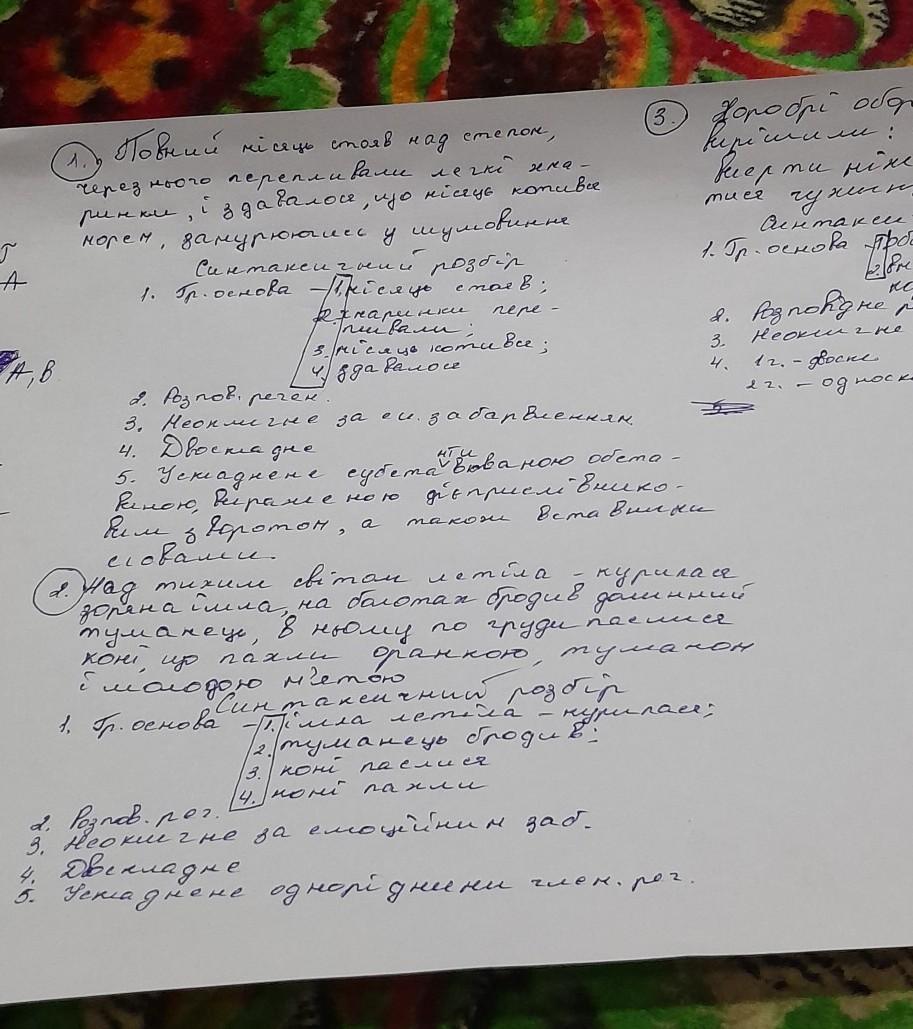 1. Повний місяць стояв над степом,
через нього перепливали легкі хма-
ринки, і здавалося, що місяць котився
морем, занурюючись у шумовиння
Синтаксичний розбір
1. Гр. основа – 1. місяць стояв;
2. хмаринки пере-
пливали;
3. місяць котився;
4. здавалося
2. Розпов. речен.
3. Неокличне за ем. забарвленням.
4. Двоскладне
5. Ускладнене субстантивованою обста-
виною, вираженою дієприслівнико-
вим зворотом, а також вставними
словами.
2. Над тихим світом летіла – курилася
зоряна імла, на болотах бродив долинний
туманець, в ньому по груди паслися
коні, що пахли оранкою, туманом
і молодою м'ятою
Синтаксичний розбір
1. Гр. основа – 1. імла летіла – курилася;
2. туманець бродив;
3. коні паслися
4. коні пахли
2. Розпов. реч.
3. Неокличне за емоційним заб.
4. Двоскладне
5. Ускладнене однорідними член. реч.
3. Хоробрі обор
вирішили:
тися чужин
Синтакси
1. Гр. основа –
2. Розповідне р
3. Неокличне
4. 1 г. – двоскл
2 г. – односк
А
А, В